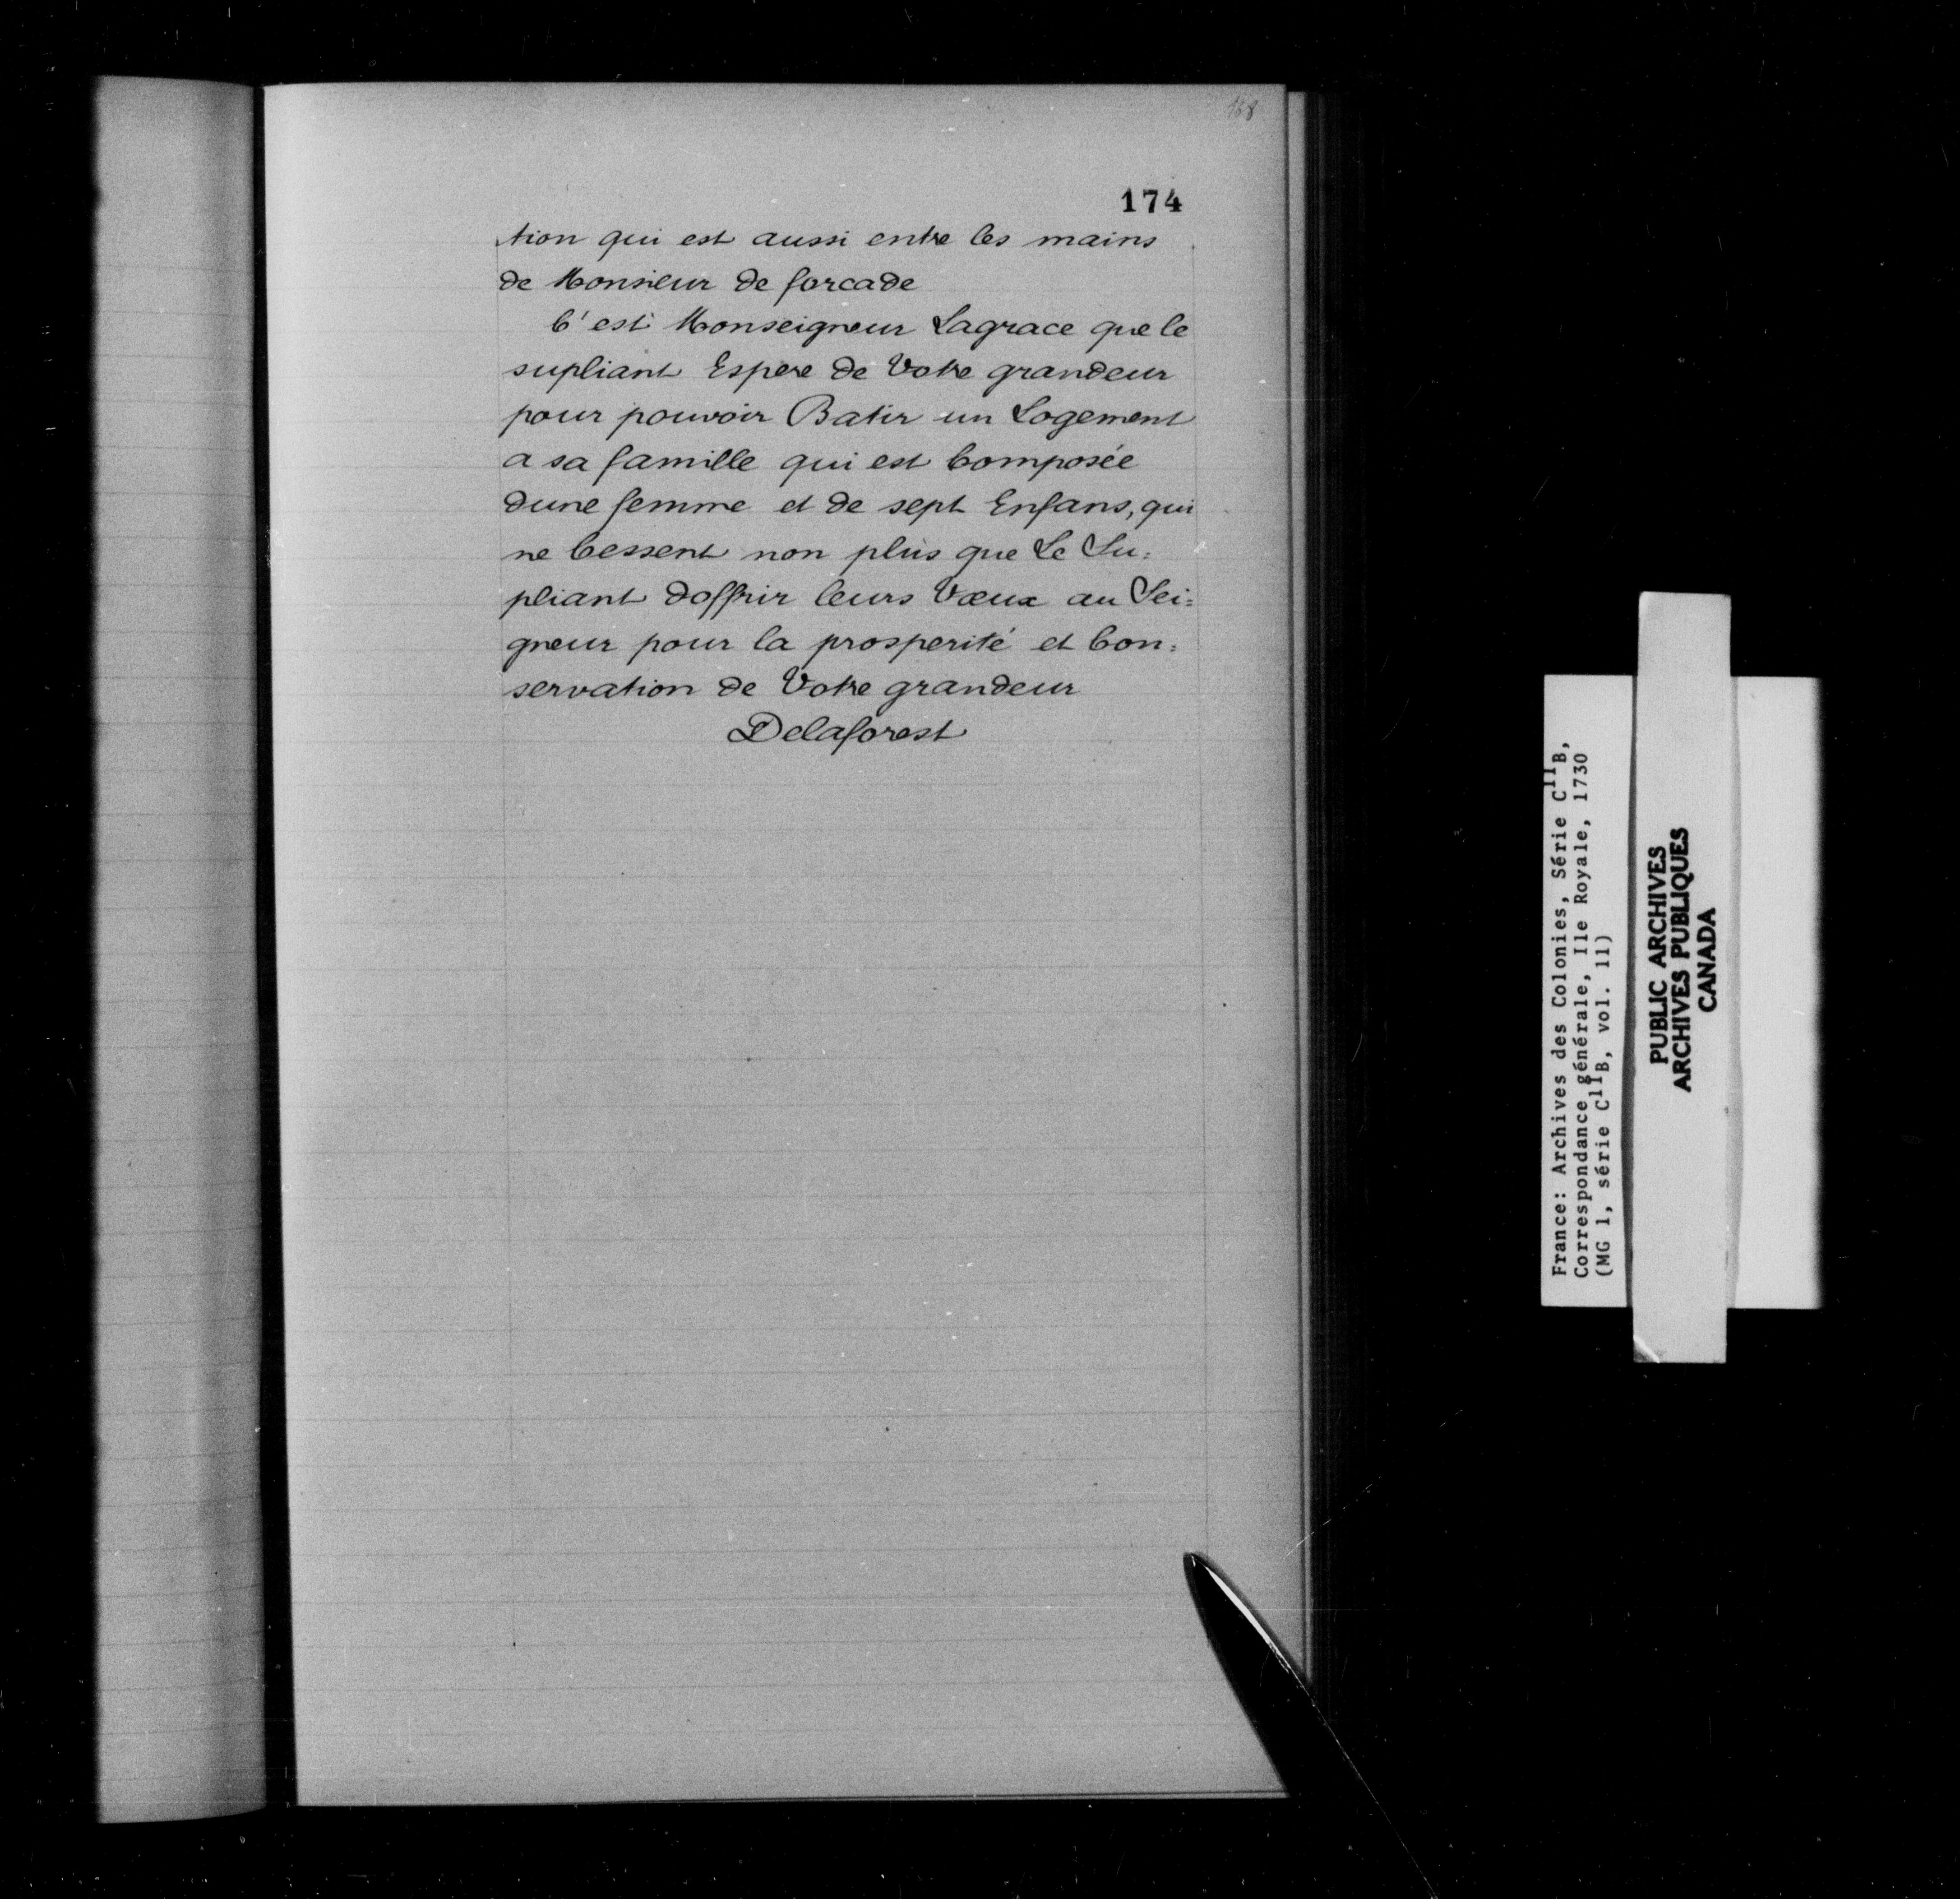 168
174
tion qui est aussi entre les mains
de Monsieur de forcade
C'est Monseigneur Lagrace que le
supliant Espere de Votre grandeur
pour pouvoir Batir un Logement
a sa famille qui est Composée
dune femme et de sept Enfans, qui
ne Cessent non plus que Le Su=
pliant doffrir leurs Vœux au Sei=
gneur pour la prosperité et Con=
servation de Votre grandeur
Delaforest
France: Archives des Colonies, Série C11B,
Correspondance générale, Ile Royale, 1730
(MG 1, série C11B, vol. 11)
PUBLIC ARCHIVES
ARCHIVES PUBLIQUES
CANADA